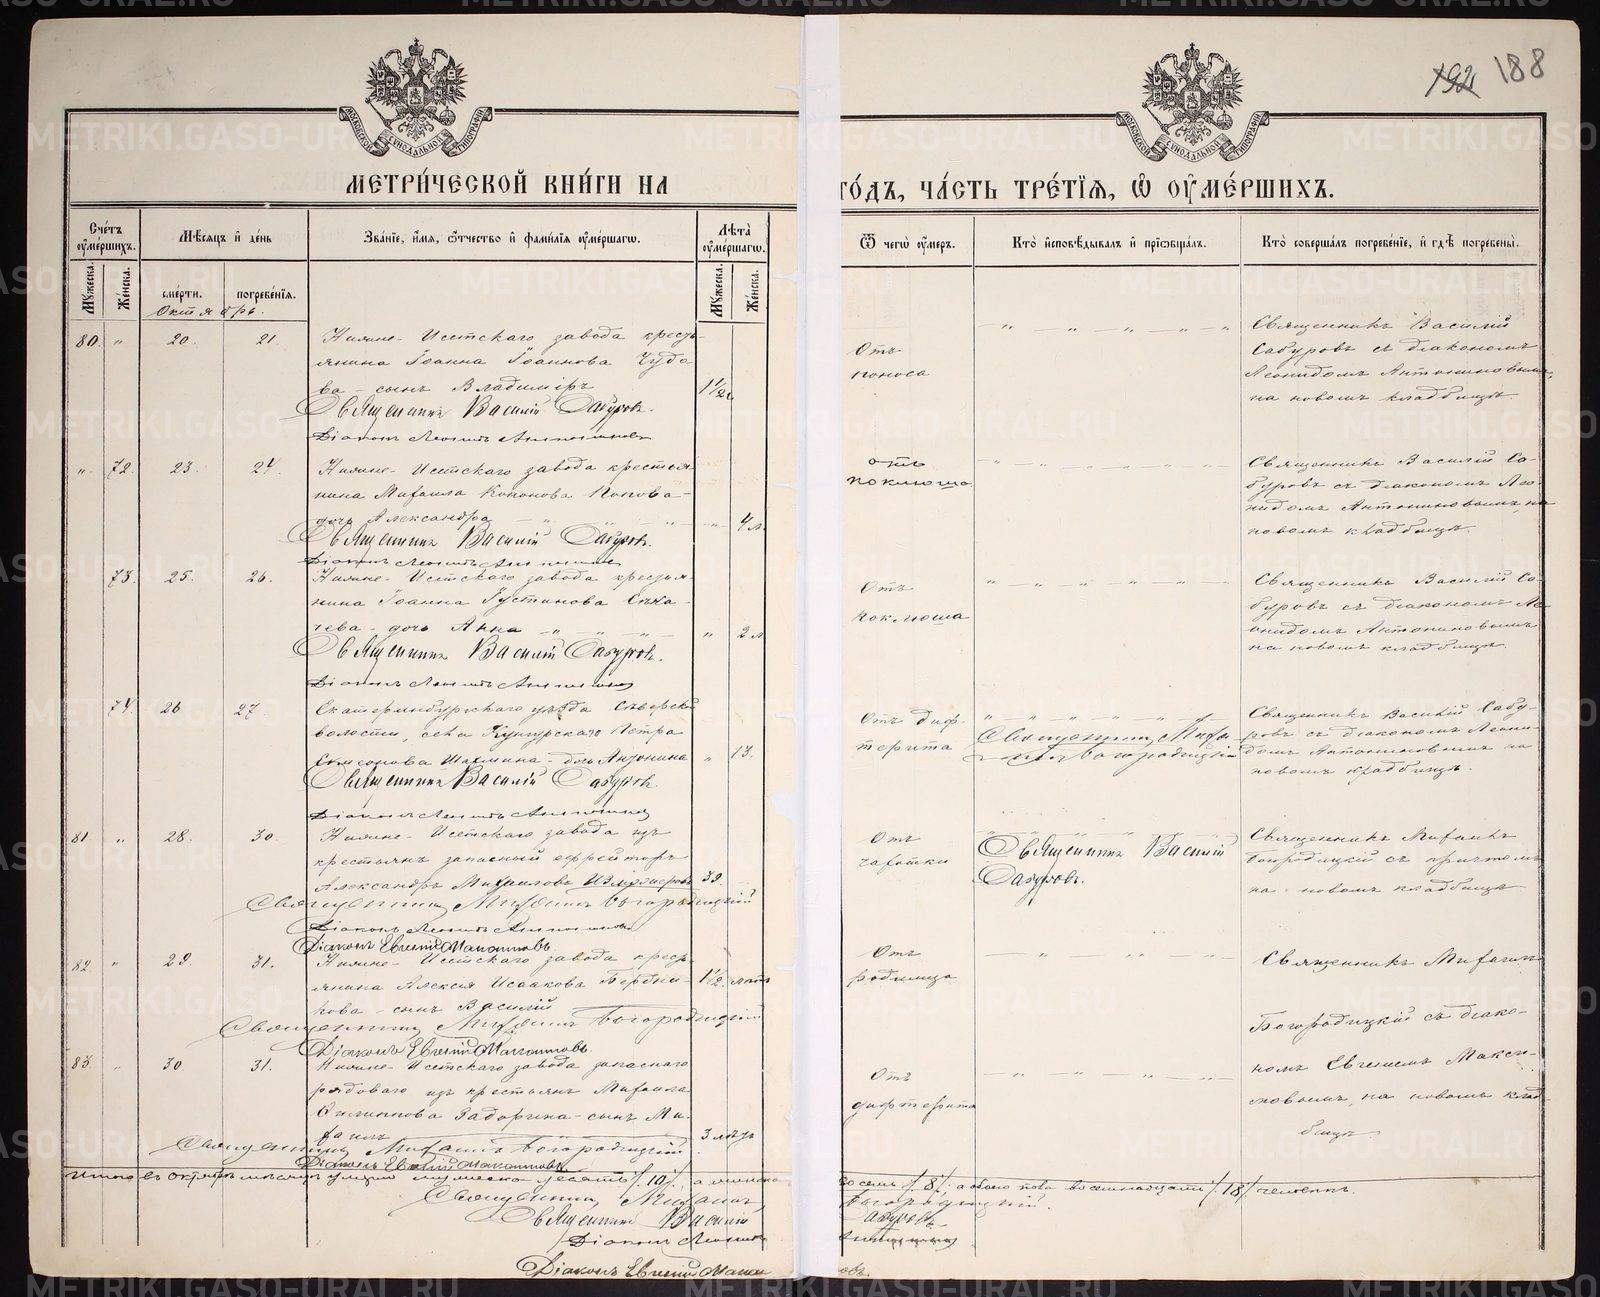 192 188
МОСКОВСКОЙ СУНОДАЛЬНОЙ ТИПОГРАФІИ
МОСКОВСКОЙ СУНОДАЛЬНОЙ ТИПОГРАФІИ
МЕТРИ́ЧЕСКОЙ КНИ́ГИ НА
ГО́ДЪ, ЧА́СТЬ ТРЕ́ТІѦ, Ѡ ОУМЕ́РШИХЪ.
Сче́тъ оуме́ршихъ.
Мѣ́сяцъ и де́нь
Зва́нїе, и́мя, о́тчество и фами́лїя оуме́ршагѡ.
Лѣта̀ оуме́ршагѡ.
Ѿ чегѡ̀ оу́меръ.
Кто̀ исповѣ́дывалъ и прїобща́лъ.
Кто̀ соверша́лъ погребе́нїе, и гдѣ̀ погребены̀.
Мужеска. Женска.
сме́рти. погребе́нїя.
Мужеска. Женска.
Октябрь.
80. " 20. 21.
Нижне-Исетскаго завода кресть-
янина Іоанна Іоаннова Чудо-
ва - сынъ Владиміръ
1½ г.
Священникъ Василій Сабуровъ.
Діаконъ Леонидъ Антониновъ
Отъ
поноса
Священникъ Василій
Сабуровъ съ діакономъ
Леонидомъ Антониновымъ,
на новомъ кладбищѣ.
" 72. 23. 24.
Нижне-Исетскаго завода крестья-
нина Михаила Кононова Попова -
дочь Александра
4 л.
Священникъ Василій Сабуровъ.
Діаконъ Леонидъ Антониновъ
отъ
коклюша
Священникъ Василій Са-
буровъ съ діакономъ Лео-
нидомъ Антониновымъ, на
новомъ кладбищѣ.
73. 25. 26.
Нижне-Исетскаго завода крестья-
нина Іоанна Іустинова Сѣка-
чева - дочь Анна
" 2 л.
Священникъ Василій Сабуровъ.
Діаконъ Леонидъ Антониновъ
Отъ
коклюша
Священникъ Василій Са-
буровъ съ діакономъ Ле-
онидомъ Антониновымъ
на новомъ кладбищѣ.
74. 26 27.
Екатеринбургскаго уѣзда Сѣверской
волости, села Кунгурскаго Петра
Шахмина - дочь Антонина
" 13.
Священникъ Василій Сабуровъ.
Діаконъ Леонидъ Антониновъ
Отъ диф-
терита
Священникъ Миха-
илъ Богородицкій
Священникъ Василій Сабу-
ровъ съ діакономъ Леони-
домъ Антониновымъ на
новомъ кладбищѣ.
81 " 28. 30.
Нижне-Исетскаго завода изъ
крестьянъ запасный ефрейторъ
Александръ Михаиловъ
39.
Священникъ Михаилъ Богородицкій
Діаконъ Леонидъ Антониновъ
Діаконъ Евгеній Максимовъ
Отъ
чахотки
Священникъ Василій
Сабуровъ.
Священникъ Михаилъ
Богородицкій съ причтомъ
на новомъ кладбищѣ
82 " 29 31.
Нижне-Исетскаго завода кресть-
янина Алексія Исаакова Бердни-
кова - сынъ Василій
1½ лѣтъ
Священникъ Михаилъ Богородицкій
Діаконъ Евгеній Максимовъ.
Отъ
родимца
Священникъ Михаилъ
Богородицкій съ діако-
номъ Евгеніемъ Макси-
мовымъ, на новомъ клад-
бищѣ.
83 " 30. 31.
Нижне-Исетскаго завода запаснаго
рядоваго изъ крестьянъ Михаила
Филиппова Задорина - сынъ Ми-
хаилъ
3 лѣтъ
Священникъ Михаилъ Богородицкій
Діаконъ Евгеній Максимовъ
Отъ
дифтерита
Итого въ октябрѣ мѣсяцѣ умерло мужеска десять /10/, а женска
восемь /8/, а обоего пола восемнадцать /18/ человѣкъ.
Священникъ Михаилъ Богородицкій.
Священникъ Василій Сабуровъ
Діаконъ Леонидъ Антониновъ
Діаконъ Евгеній Максимовъ.
METRIKI.GASO-URAL.RU